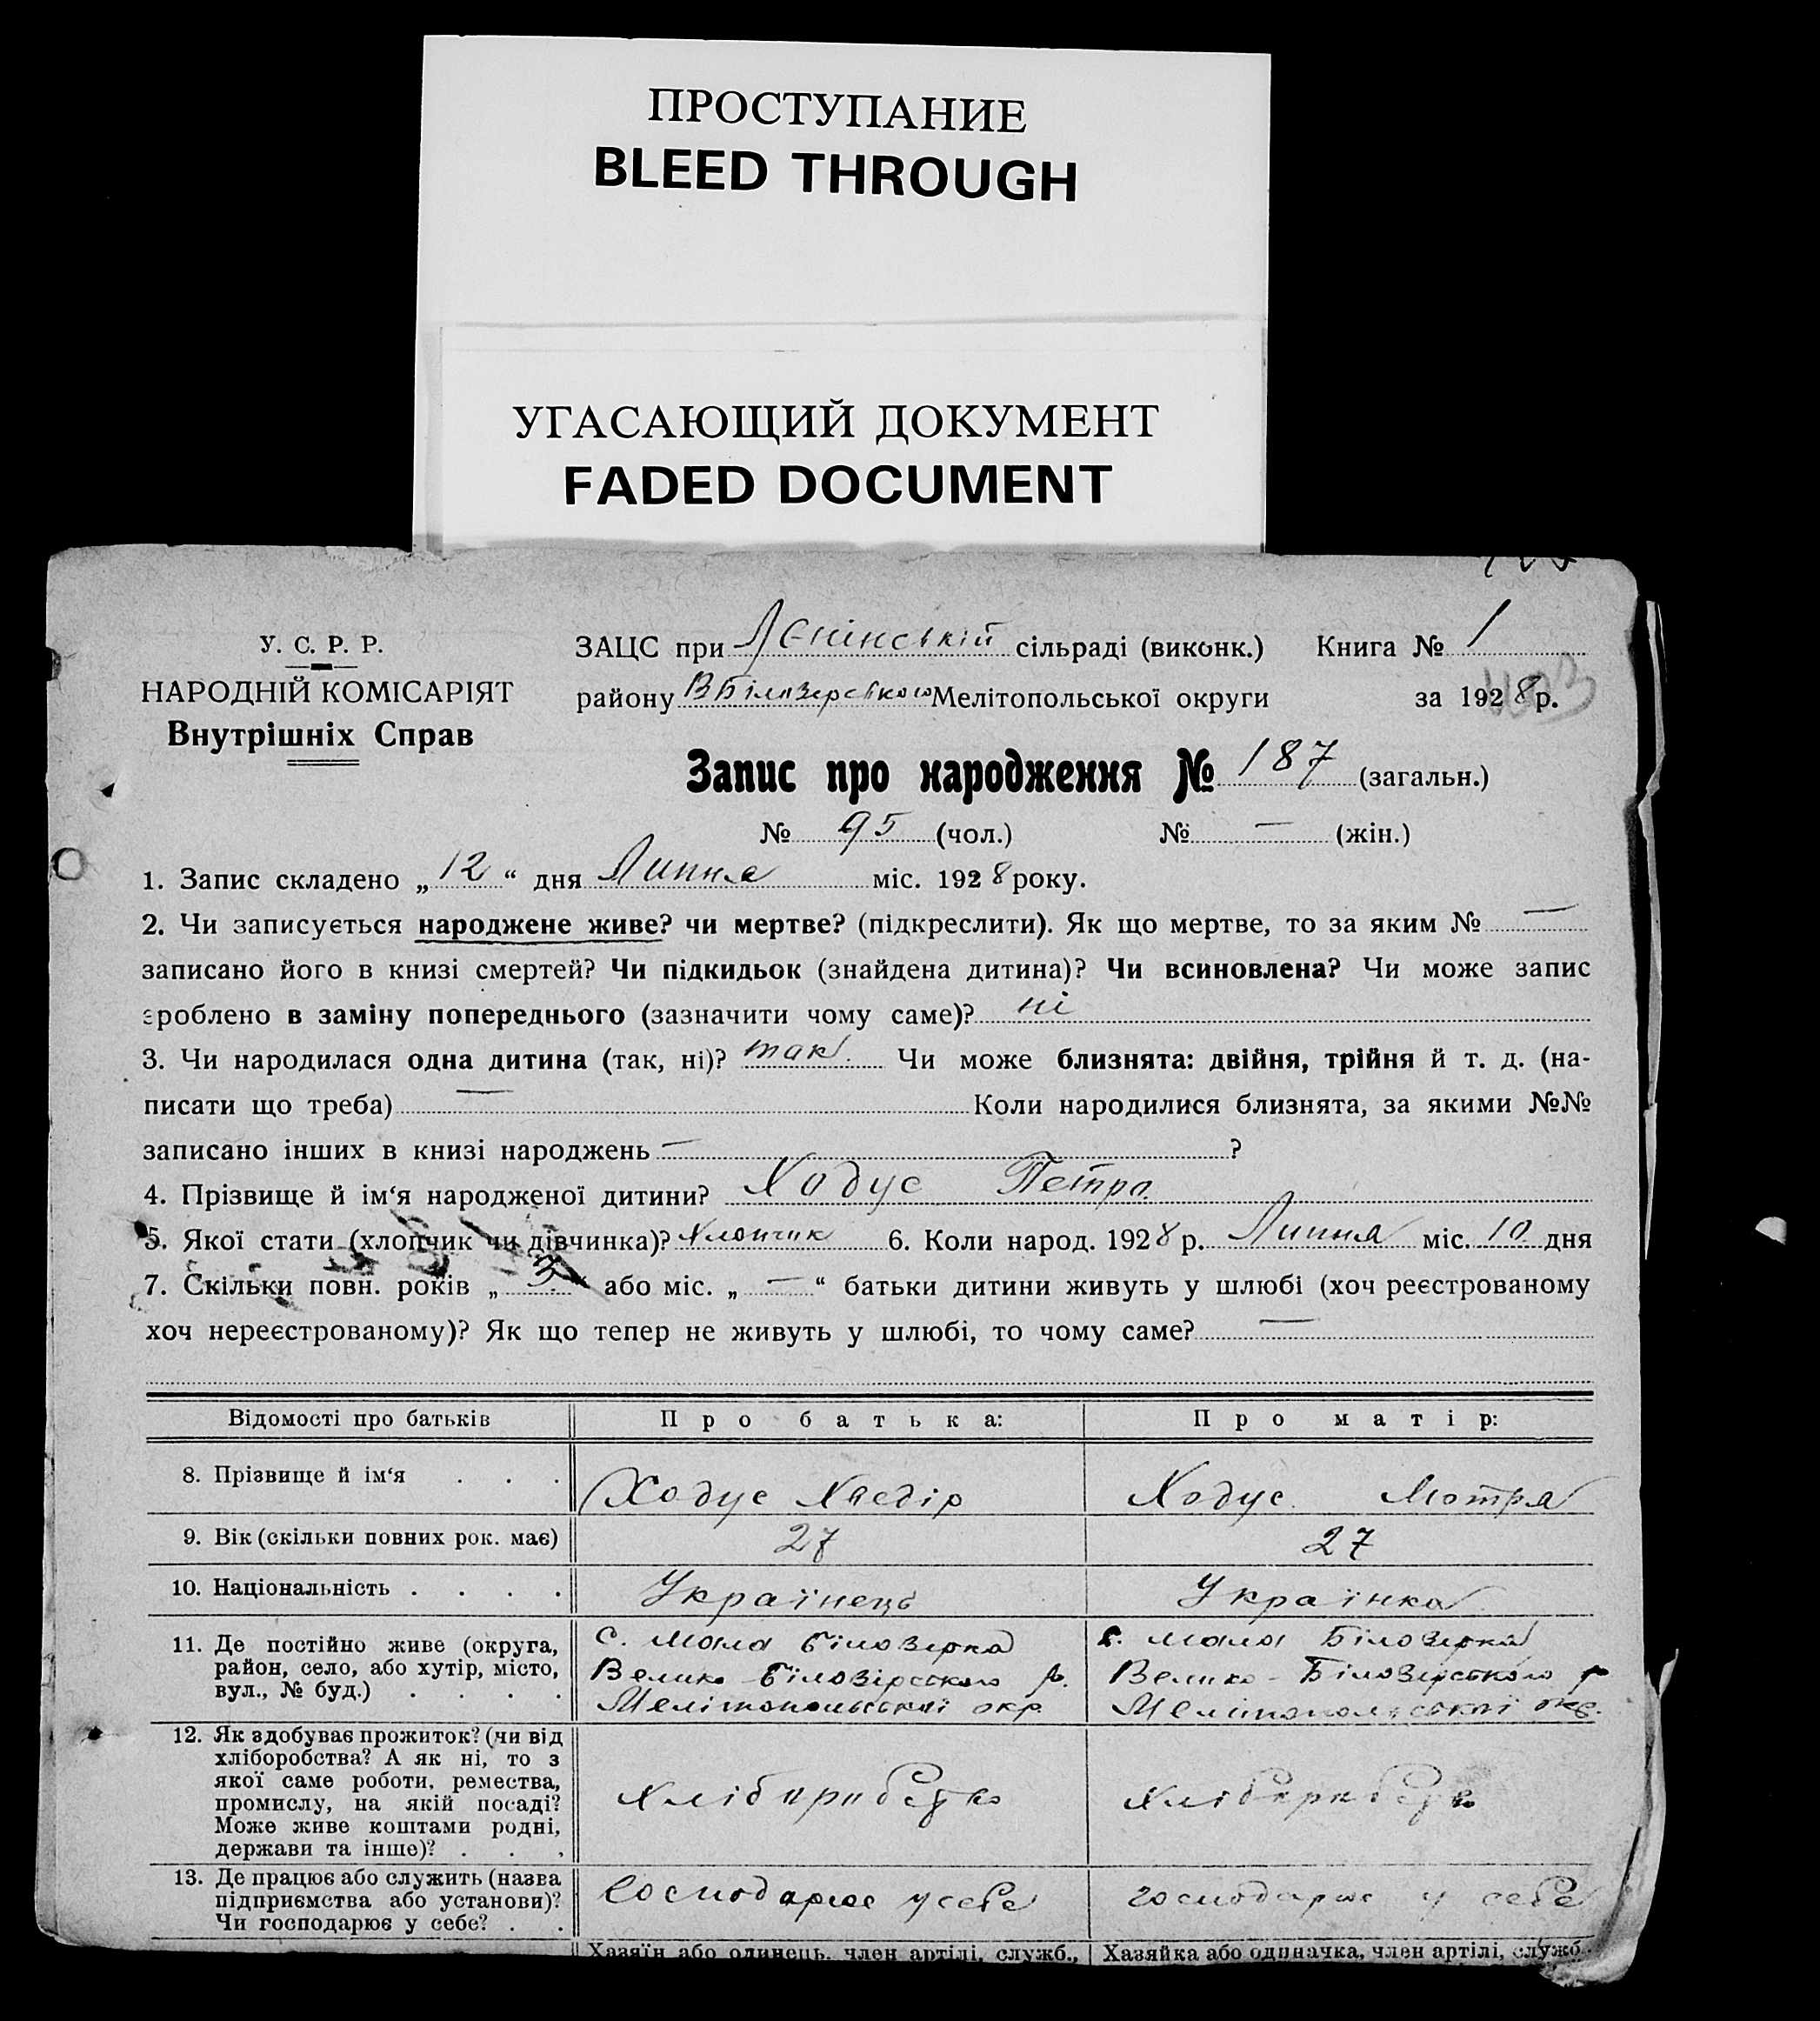 ПРОСТУПАНИЕ
BLEED THROUGH
УГАСАЮЩИЙ ДОКУМЕНТ
FADED DOCUMENT
У. С. Р. Р.
НАРОДНІЙ КОМІСАРІЯТ
Внутрішніх Справ
ЗАЦС при Лєнінській сільраді (виконк.) Книга № 1
району ВБілозерського Мелітопольської округи за 1928 р.
Запис про народження № 187 (загальн.)
№ 95 (чол.) № — (жін.)
1. Запис складено „12“ дня Липня міс. 1928 року.
2. Чи записується народжене живе? чи мертве? (підкреслити). Як що мертве, то за яким № —
записано його в книзі смертей? Чи підкидьок (знайдена дитина)? Чи всиновлена? Чи може запис
зроблено в заміну попереднього (зазначити чому саме)? ні
3. Чи народилася одна дитина (так, ні)? так. Чи може близнята: двійня, трійня й т. д. (на-
писати що треба) — Коли народилися близнята, за якими №№
записано інших в книзі народжень — ?
4. Прізвище й ім‘я народженої дитини? Ходус Петро
5. Якої стати (хлопчик чи дівчинка)? Хлопчик 6. Коли народ. 1928 р. Липня міс. 10 дня
7. Скільки повн. років „3“ або міс. „—“ батьки дитини живуть у шлюбі (хоч реєстрованому
хоч нереєстрованому)? Як що тепер не живуть у шлюбі, то чому саме? —
Відомості про батьків Про батька: Про матір:
8. Прізвище й ім‘я . . . Ходус Хведір Ходус Мотря
9. Вік (скільки повних рок. має) 27 27
10. Національність . . . . Українець Українка
11. Де постійно живе (округа,
район, село, або хутір, місто,
вул., № буд.) . . . .
с. Мала Білозірка
Велико-Білозірського р.
Мелітопольської окр.
с. Мала Білозірка
Велико-Білозірського р
Мелітопольської окр.
12. Як здобуває прожиток? (чи від
хліборобства? А як ні, то з
якої саме роботи, ремества,
промислу, на якій посаді?
Може живе коштами родні,
держави та інше)? . . .
Хліборобство
Хліборобство
13. Де працює або служить (назва
підприємства або установи)?
Чи господарює у себе? . .
Господарює у себе
господарює у себе
Хазяїн або одинець, член артілі, служб.,
Хазяйка або одиначка, член артілі, служб.